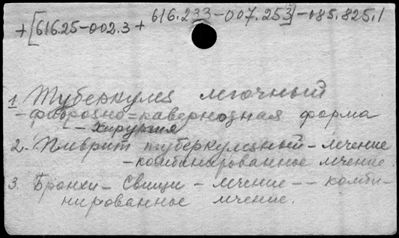 +[616.25-002.3 + 616.233-007.253]-085.825.1
1 Туберкулез легочный
- фиброзно=кавернозная форма
- Хирургия
2. Плеврит туберкулезный - лечение
- комбинированное лечение
3. Бронхи - Свищи - лечение -- комби-
нированное лечение.